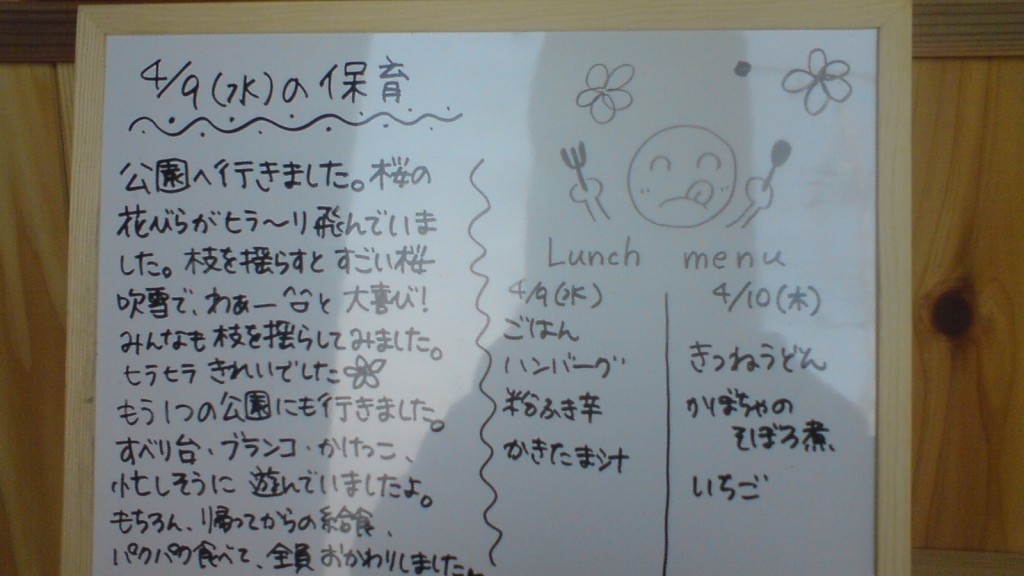 4/9(水)の保育
公園へ行きました。桜の
花びらがヒラ〜リ飛んでいま
した。枝を揺らすとすごい桜
吹雪で、わぁーと大喜び!
みんなも枝を揺らしてみました。
ヒラヒラきれいでした
もう1つの公園にも行きました。
すべり台・ブランコ・かけっこ、
忙しそうに遊んでいましたよ。
もちろん、帰ってからの給食、
パクパク食べて、全員おかわりしました。
Lunch menu
4/9(水)
ごはん
ハンバーグ
粉ふき芋
かきたま汁
4/10(木)
きつねうどん
かぼちゃの
そぼろ煮
いちご